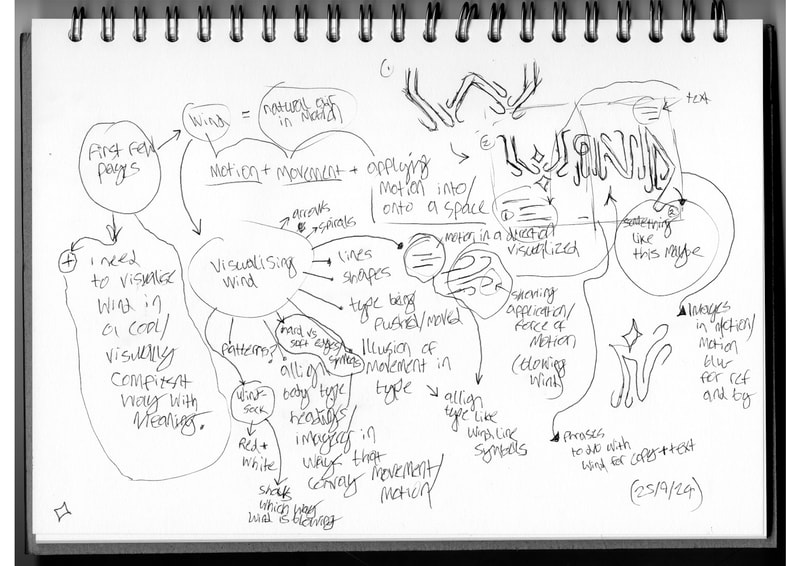 First few
pages
Wind
=
natural air
in motion
Motion + movement + applying
motion into/
onto a space
+
i need
to visualise
wind in
a cool/
visually
way with
meaning.
visualising
wind
arrows
spirals
lines
shapes
type being
pushed/moved
Illusion of
movement in
type
patterns?
hard vs
soft edges/
symbols
allign
body type
headings/
imagery in
way that
convay movement/
motion
wind
sock
Red +
white
shows
which way
wind is blowing
motion in a direction
visualized
showing
application/
force of
motion
(blowing
wind)
allign
type like
wind line
symbols
1
W
2
WIND
text
2
something
like
this maybe
Images
in motion/
motion
blur
for ref
and bg
phrases
to do with
wind for copy + text
(25/9/24)